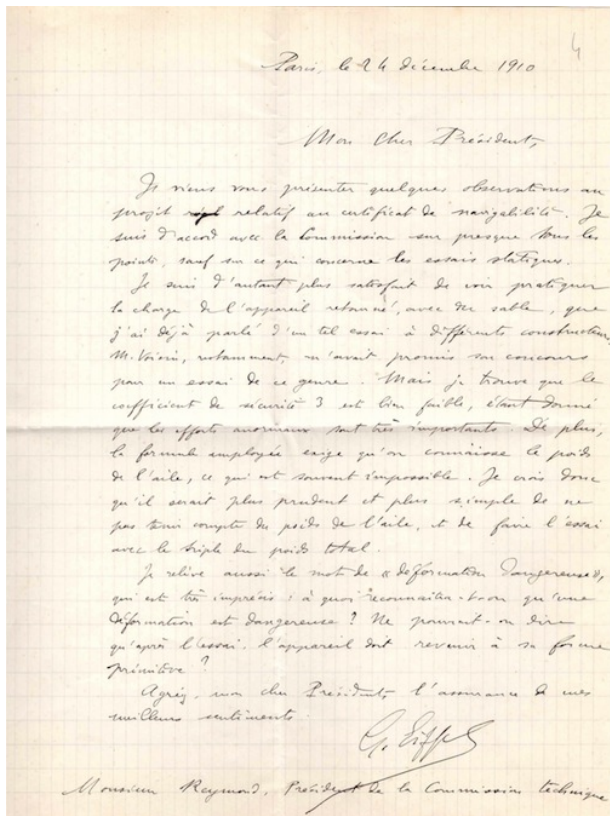 4
Paris, le 24 décembre 1910
Mon cher Président,
Je viens vous présenter quelques observations au
projet relatif au certificat de navigabilité. Je
suis d'accord avec la Commission sur presque tous les
points, sauf sur ce qui concerne les essais statiques.
Je suis d'autant plus satisfait de voir pratiquer
la charge de l'appareil retourné, avec du sable, que
j'ai déjà parlé d'un tel essai à différents constructeurs,
M. Voisin, notamment, m'avait promis son concours
pour un essai de ce genre. Mais je trouve que le
coefficient de sécurité 3 est bien faible, étant donné
que les efforts anormaux sont très importants. De plus,
la formule employée exige qu'on connaisse le poids
de l'aile, ce qui est souvent impossible. Je crois donc
qu'il serait plus prudent et plus simple de ne
pas tenir compte du poids de l'aile, et de faire l'essai
avec le triple du poids total.
Je relève aussi le mot de « déformation dangereuse »,
qui est très imprécis : à quoi reconnaitra-t-on qu'une
déformation est dangereuse ? Ne pourrait-on dire
qu'après l'essai, l'appareil doit revenir à sa forme
primitive ?
Agréez, mon cher Président, l'assurance de mes
meilleurs sentiments.
G. Eiffel
Monsieur Reymond, Président de la Commission technique